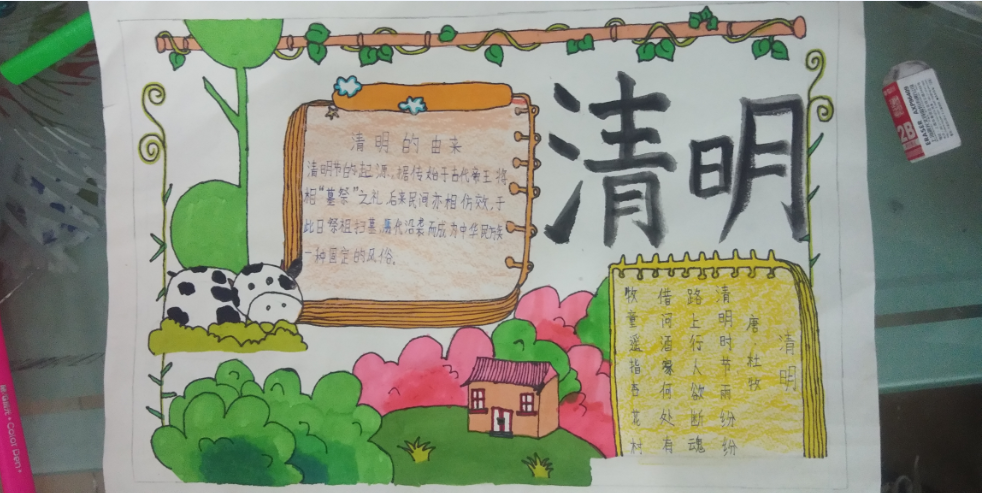 清明
清明的由来
清明节的起源,据传始于古代帝王将
相“墓祭”之礼,后来民间亦相仿效,于
此日祭祖扫墓,历代沿袭而成为中华民族
一种固定的风俗。
清明
唐 杜牧
清明时节雨纷纷
路上行人欲断魂
借问酒家何处有
牧童遥指杏花村
2B
ERASER
Color Pen